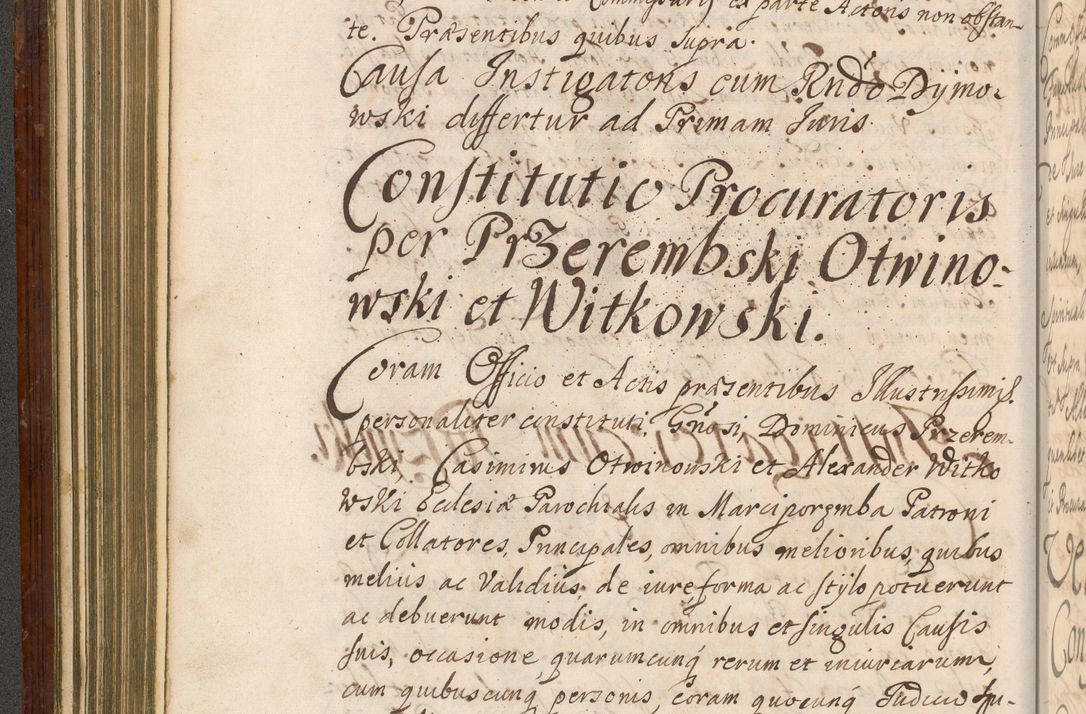 ex parte Actoris non obstan-
te. Præsentibus quibus supra.
Causa Instigatoris cum Rndo Dymo-
wski differtur ad Primam Juris.
Constitutio Procuratoris
per Przerembski Otwino-
wski et Witkowski.
Coram Officio et Actis præsentibus Illustrissimis
personaliter constituti Gnosi, Dominicus Przerem-
bski Casimirus Otwinowski et Alexander Witko
wski Ecclesiæ Parochialis in Marciporęmba Patroni
et Collatores, Principales, omnibus melioribus, quibus
melius ac Validius, de iure, forma ac stylo potuerunt
ac debuerunt modis, in omnibus et singulis Causis
suis, occasione, quarumcunq rerum et iniuriarum,
cum quibuscunq personis, coram quocunq Judicio Spi-